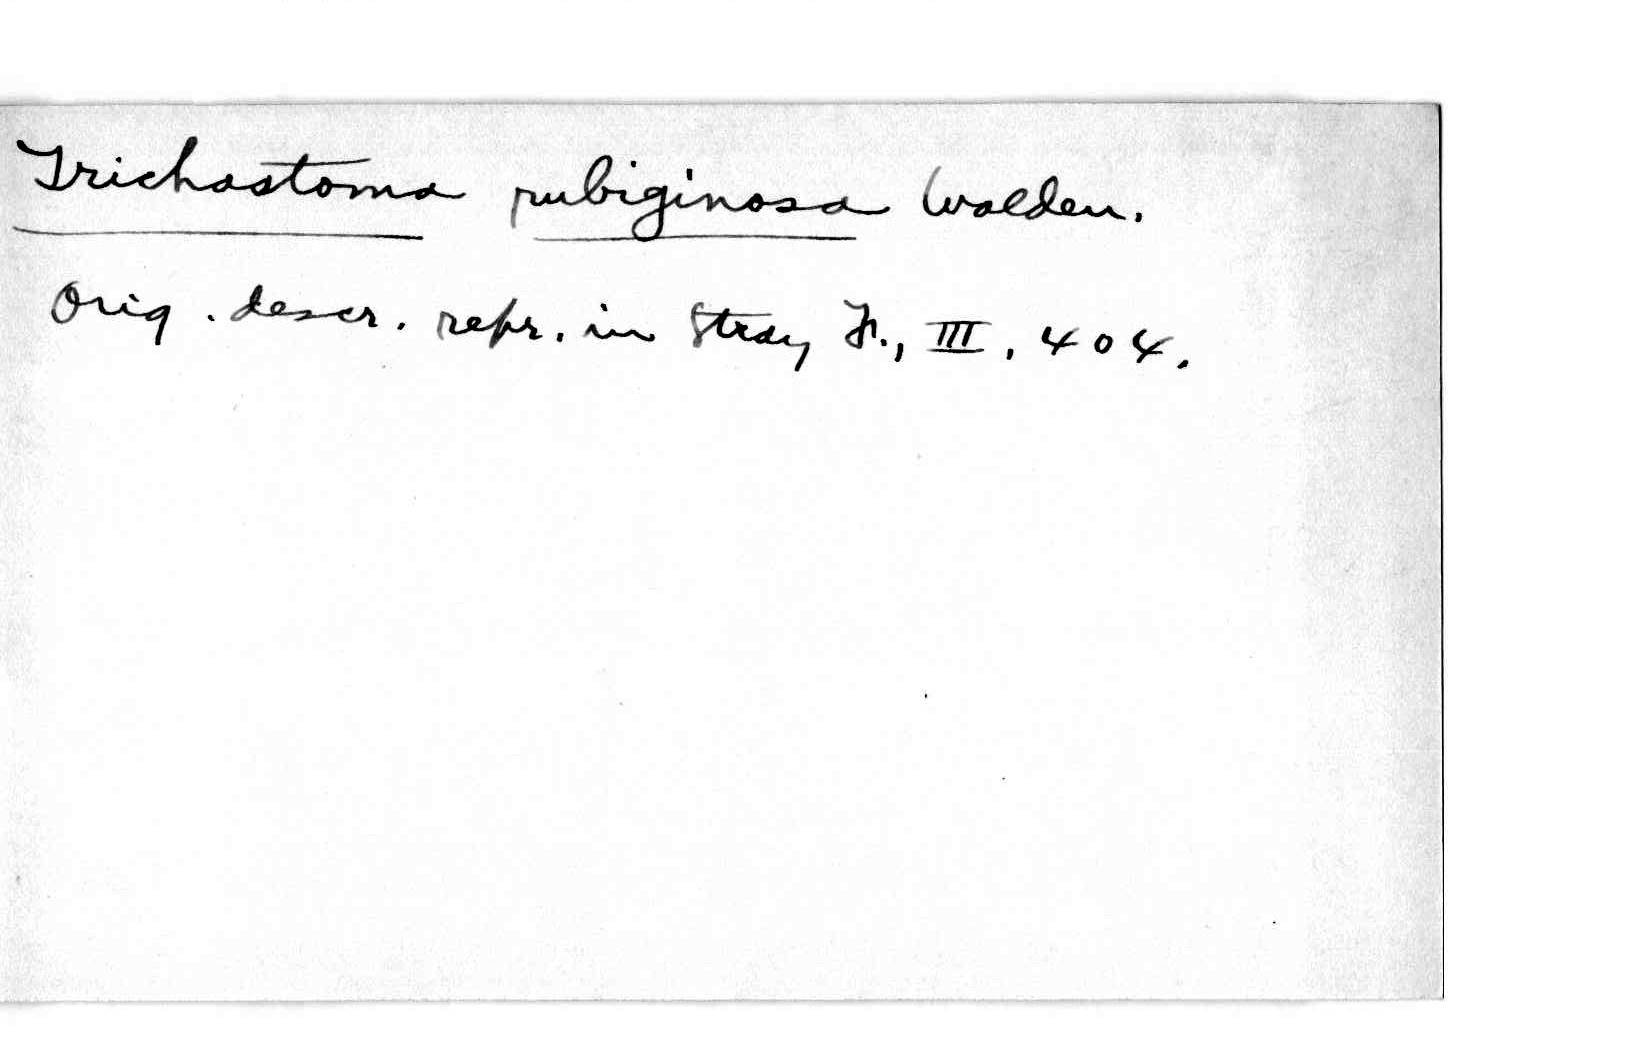 Trichastoma rubiginosa Walden.
Orig. descr. repr. in Stray F., III, 404.